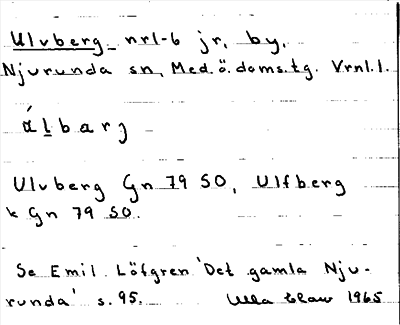 Ulvberg nr 1-6 jr, by.
Njurunda sn, Med.ö.doms.tg. Vrnl.l.
álbarg
Ulvberg Gn 79 SO, Ulfberg
k Gn 79 SO.
Se Emil Löfgren 'Det gamla Nju-
runda' s. 95. Ulla 1965